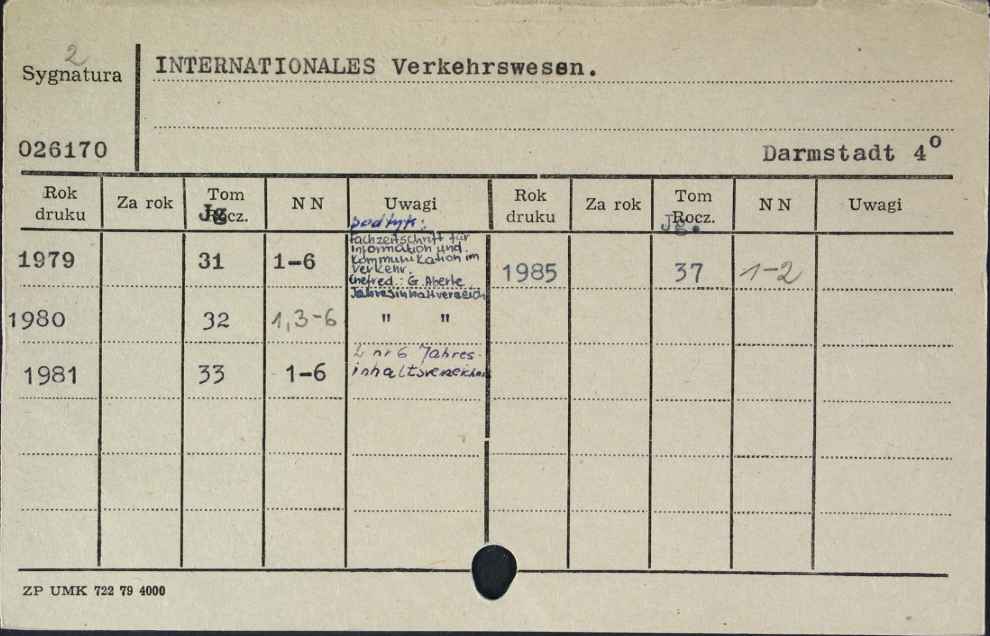 2
Sygnatura
INTERNATIONALES Verkehrswesen.
026170
Darmstadt 4º
Rok druku Za rok Tom Rocz. Jg N N Uwagi Rok druku Za rok Tom Rocz. Jg. N N Uwagi
podtyt:
Fachzeitschrift für
Information und
Kommunikation im
Verkehr.
Chefred.: G. Aberle
1979 31 1-6 1985 37 1-2
1980 32 1,3-6 " "
nr 6 Jahres-
1981 33 1-6
ZP UMK 722 79 4000